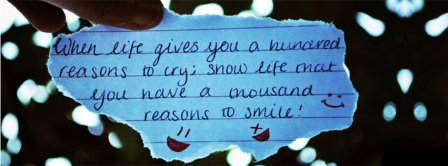 When life gives you a hundred
reasons to cry; show life that
you have a thousand
reasons to smile!